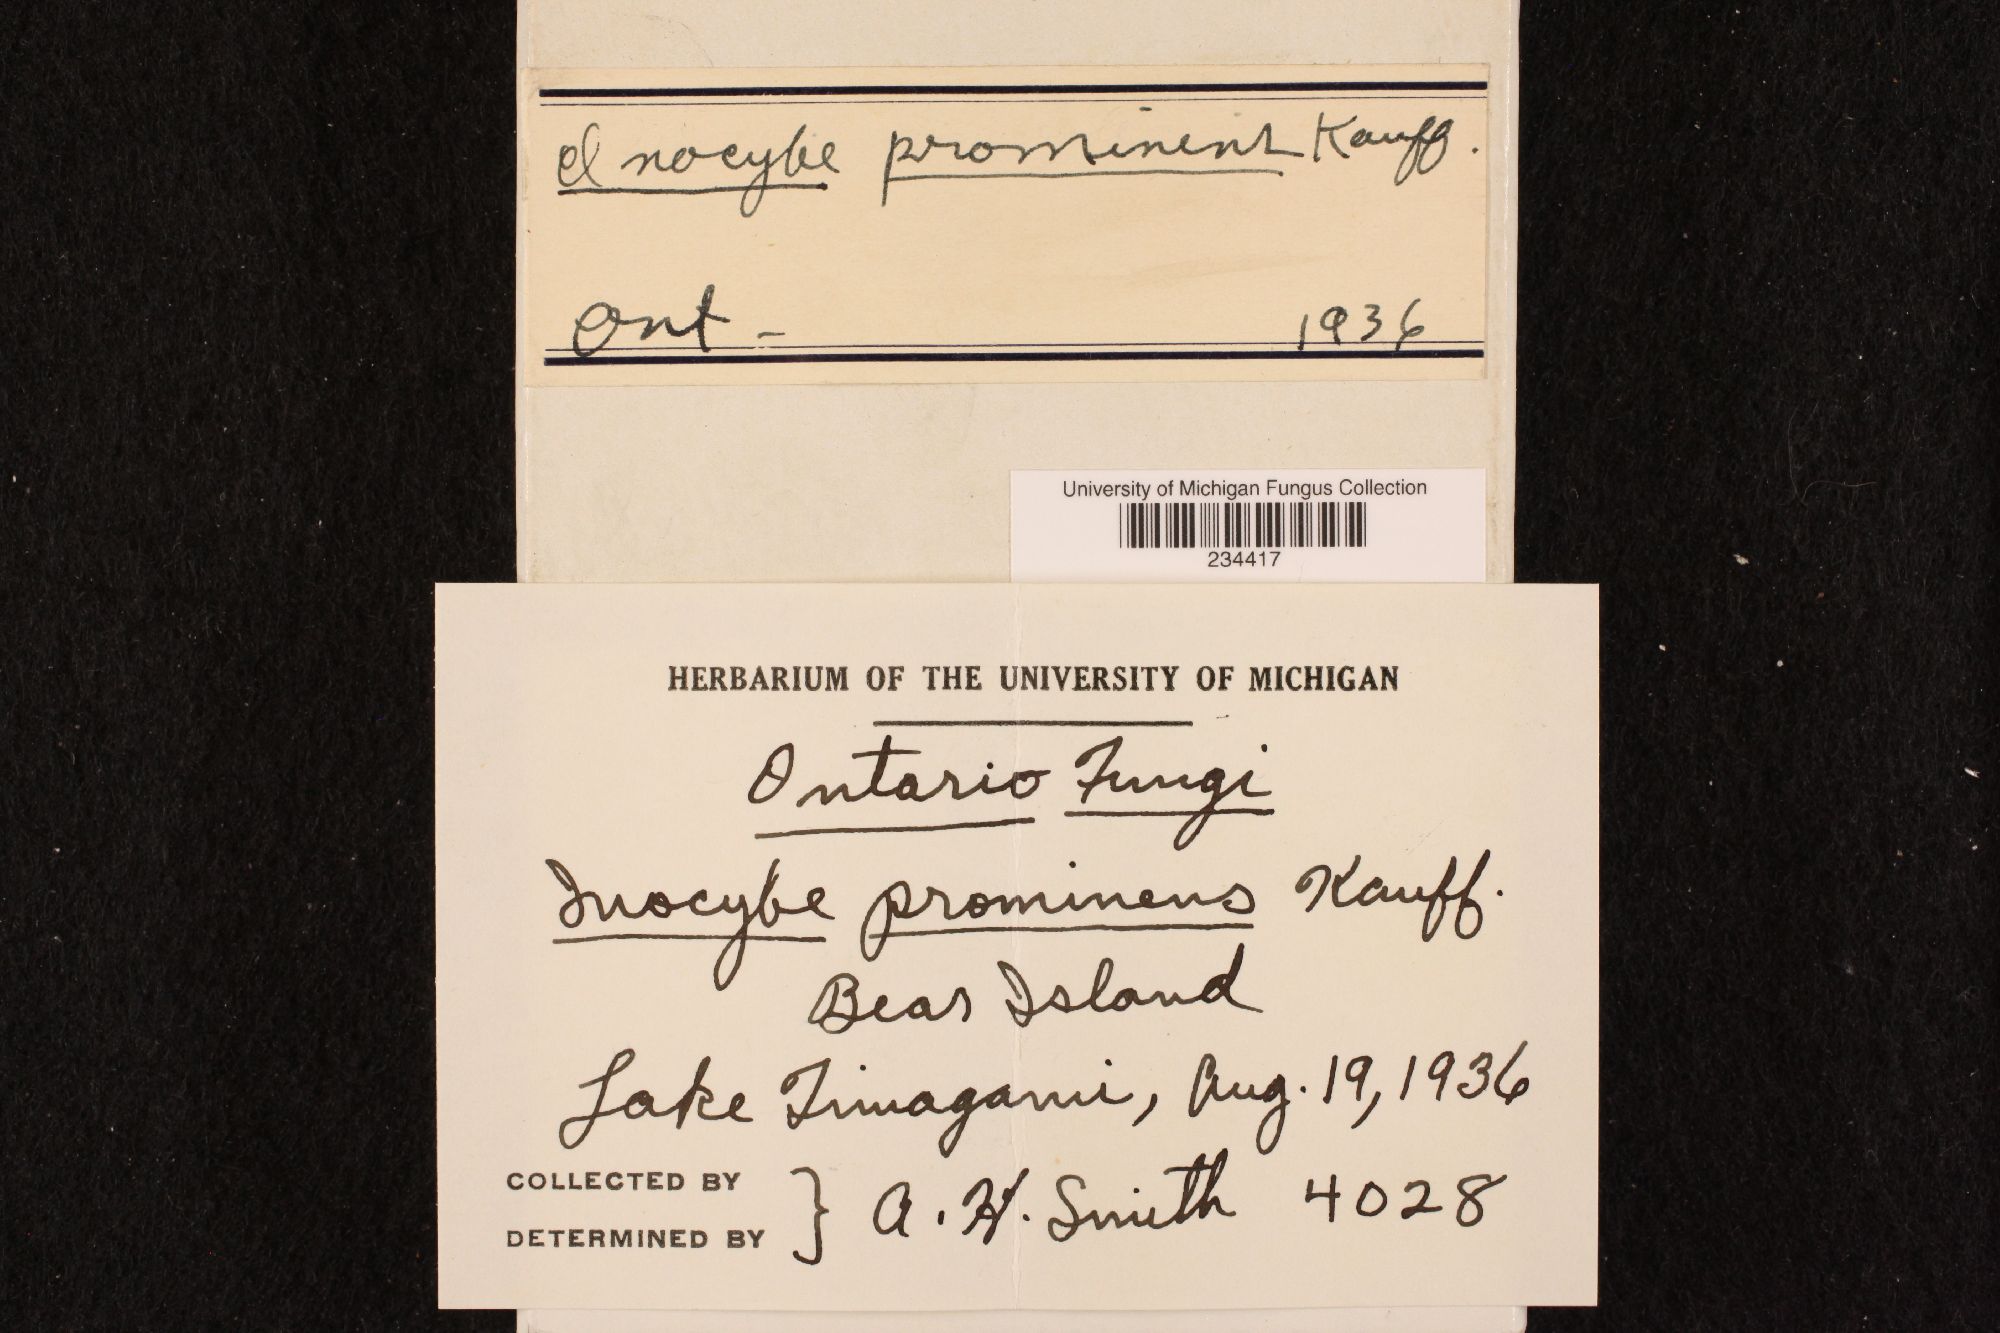 Inocybe prominens Kauff.
Ont - 1936
University of Michigan Fungus Collection
234417
HERBARIUM OF THE UNIVERSITY OF MICHIGAN
Ontario Fungi
Inocybe prominens Kauff.
Bear Island
Lake Timagami, Aug. 19, 1936
COLLECTED BY
DETERMINED BY } A. H. Smith 4028